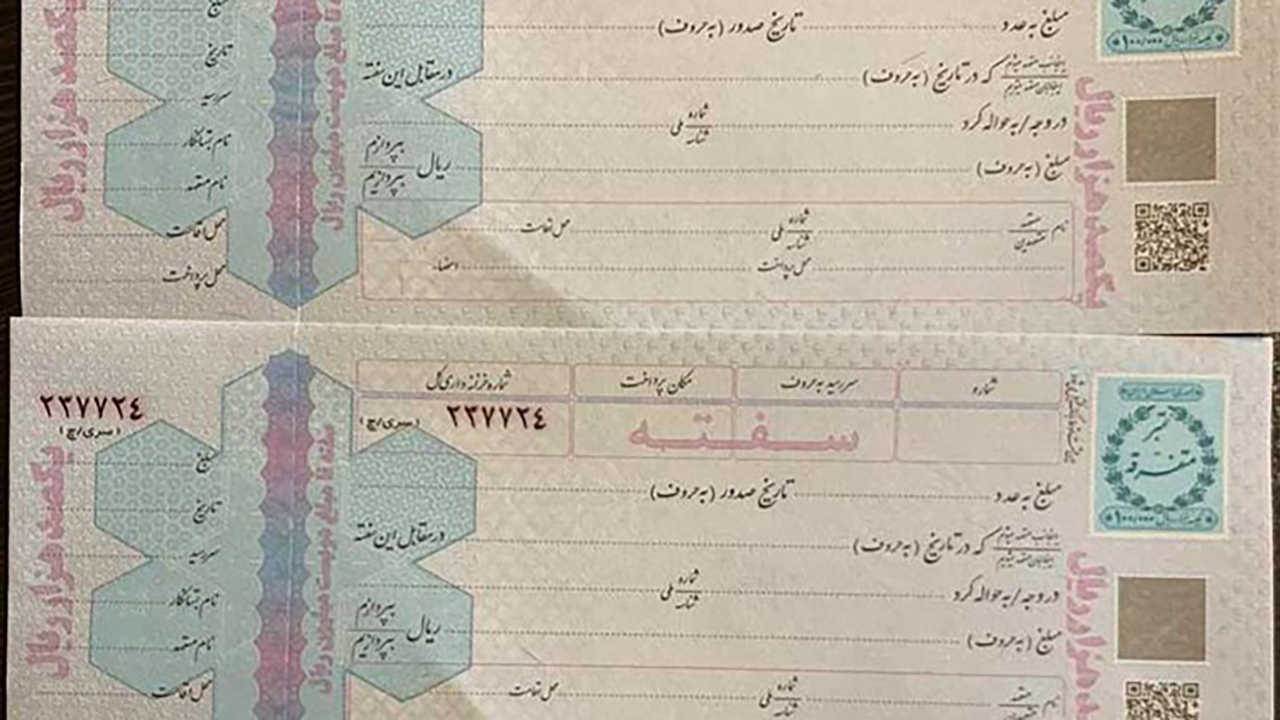 مبلغ
تاریخ
سررسید
نام بستانکار
نام متعهد
محل اقامت
محل پرداخت
یکصد هزار ریال
مبلغ به عدد تاریخ صدور (به حروف)
که در تاریخ (به حروف) در مقابل این سفته
در وجه / به حواله کرد شماره/شناسه ملی
مبلغ (به حروف) ریال بپردازم/بپردازیم
نام متعهد/متعهدین شماره/شناسه ملی محل اقامت
محل پرداخت امضاء
یکصد هزار ریال
۲۳۷۷۲٤
(سری/چ)
شماره سررسید به حروف مکان پرداخت شماره خزانه داری کل
۲۳۷۷۲٤ (سری/چ)
سفته
تمبر
متفرقه
مبلغ
تاریخ
سررسید
نام بستانکار
نام متعهد
محل اقامت
یکصد هزار ریال
سفته تا مبلغ دویست میلیون ریال
مبلغ به عدد تاریخ صدور (به حروف)
اینجانب متعهد میشوم/اینجانبان متعهد میشویم که در تاریخ (به حروف) در مقابل این سفته
در وجه / به حواله کرد شماره/شناسه ملی
مبلغ (به حروف) ریال بپردازم/بپردازیم
نام متعهد/متعهدین شماره/شناسه ملی محل اقامت